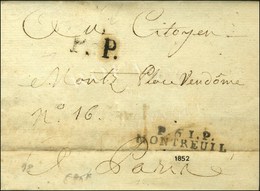 Au Citoyen
P. P.
Montz Place Vendôme
N° 16.
P. 61. P.
MONTREUIL
1852
à Paris